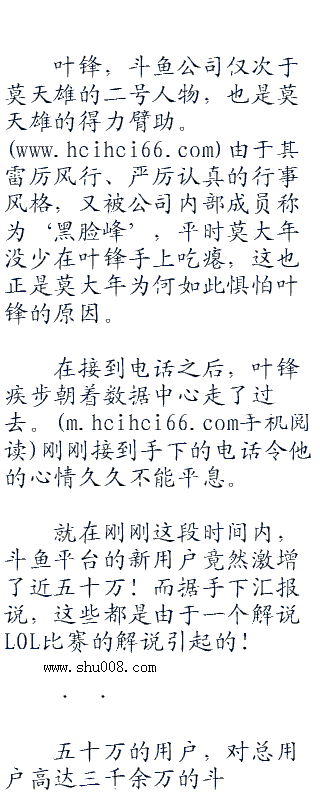 叶锋，斗鱼公司仅次于
莫天雄的二号人物，也是莫
天雄的得力臂助。
(www.hcihci66.com)由于其
雷厉风行、严厉认真的行事
风格，又被公司内部成员称
为‘黑脸峰’，平时莫大年
没少在叶锋手上吃瘪，这也
正是莫大年为何如此惧怕叶
锋的原因。
在接到电话之后，叶锋
疾步朝着数据中心走了过
去。(m.hcihci66.com手机阅
读)刚刚接到手下的电话令他
的心情久久不能平息。
就在刚刚这段时间内，
斗鱼平台的新用户竟然激增
了近五十万！而据手下汇报
说，这些都是由于一个解说
LOL比赛的解说引起的！
www.shu008.com
. .
五十万的用户，对总用
户高达三千余万的斗